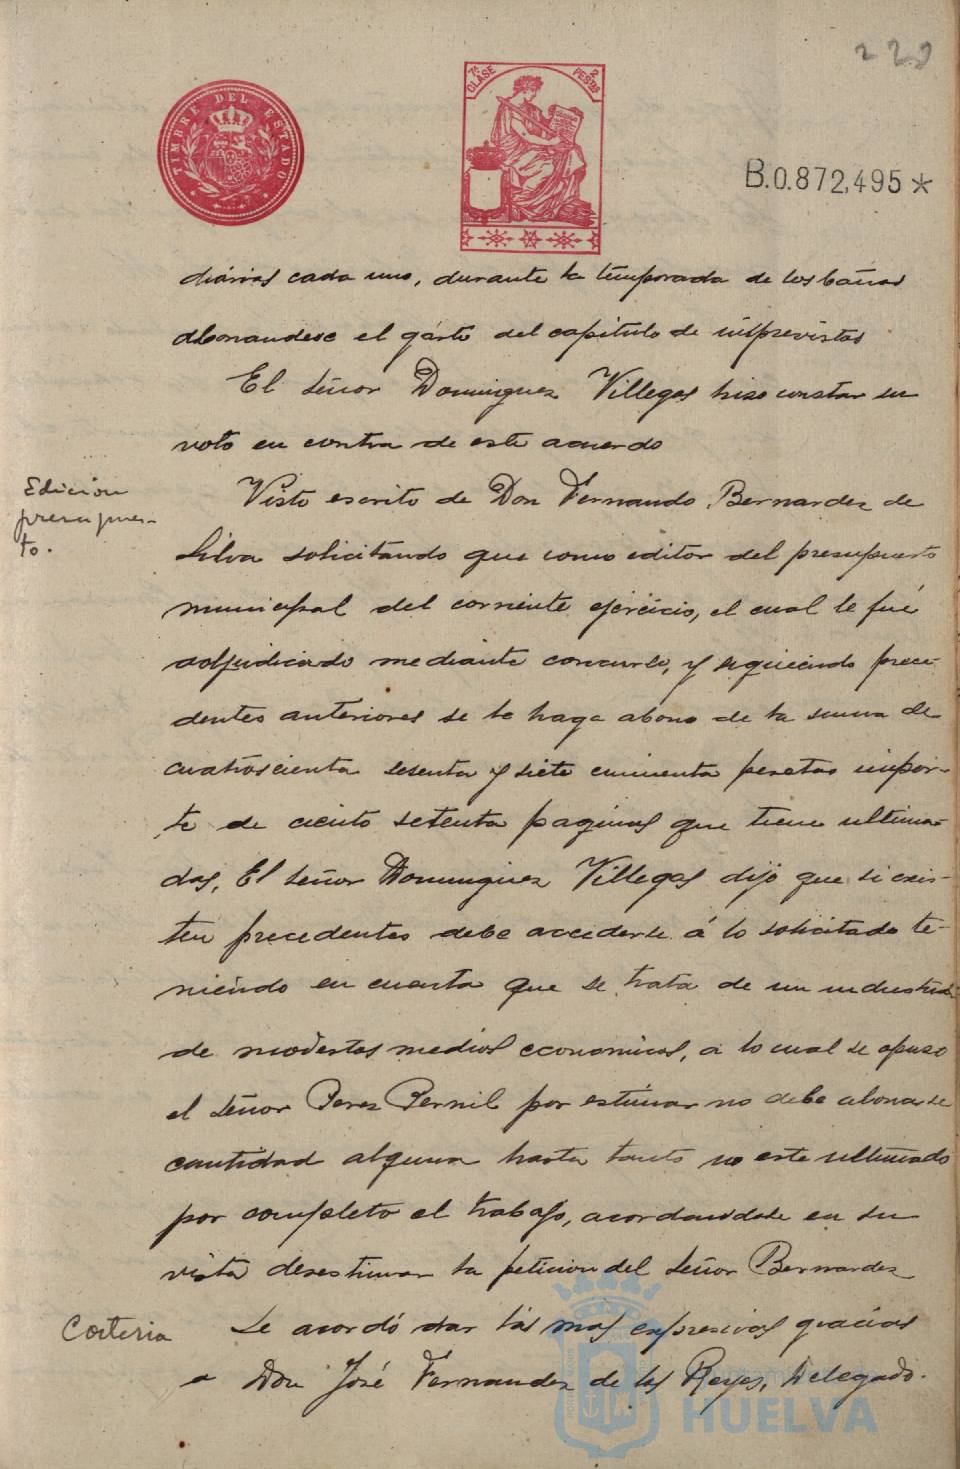 229
TIMBRE DEL ESTADO
7ª CLASE
2 PESETAS
B.0.872,495*
diarias cada uno, durante la temporada de los baños
abonandose el gasto del capitulo de imprevistos
El Señor Dominguez Villegas hizo constar su
voto en contra de este acuerdo
Edición
presupues-
to.
Visto escrito de Don Fernando Bernardez de
Silva solicitando que como editor del presupuesto
municipal del corriente ejercicio, el cual le fué
adjudicado mediante concurso, y siguiendo prece-
dentes anteriores se le haga abono de la suma de
cuatroscienta sesenta y siete cincuenta pesetas impor-
te de ciento setenta paginas que tiene ultima-
das, El Señor Dominguez Villegas dijo que si exis-
ten precedentes debe accederse á lo solicitado te-
niendo en cuenta que se trata de un industrial
de modestos medios economicos, a lo cual se opuso
el Señor Perez Pernil por estimar no debe abonarse
cantidad alguna hasta tanto no este ultimado
por completo el trabajo, acordandose en su
vista desestimar la peticion del Señor Bernardez
Corteria
Se acordó dar las mas expresivas gracias
a Don José Fernandez de los Reyes, Delegado.
HUELVA